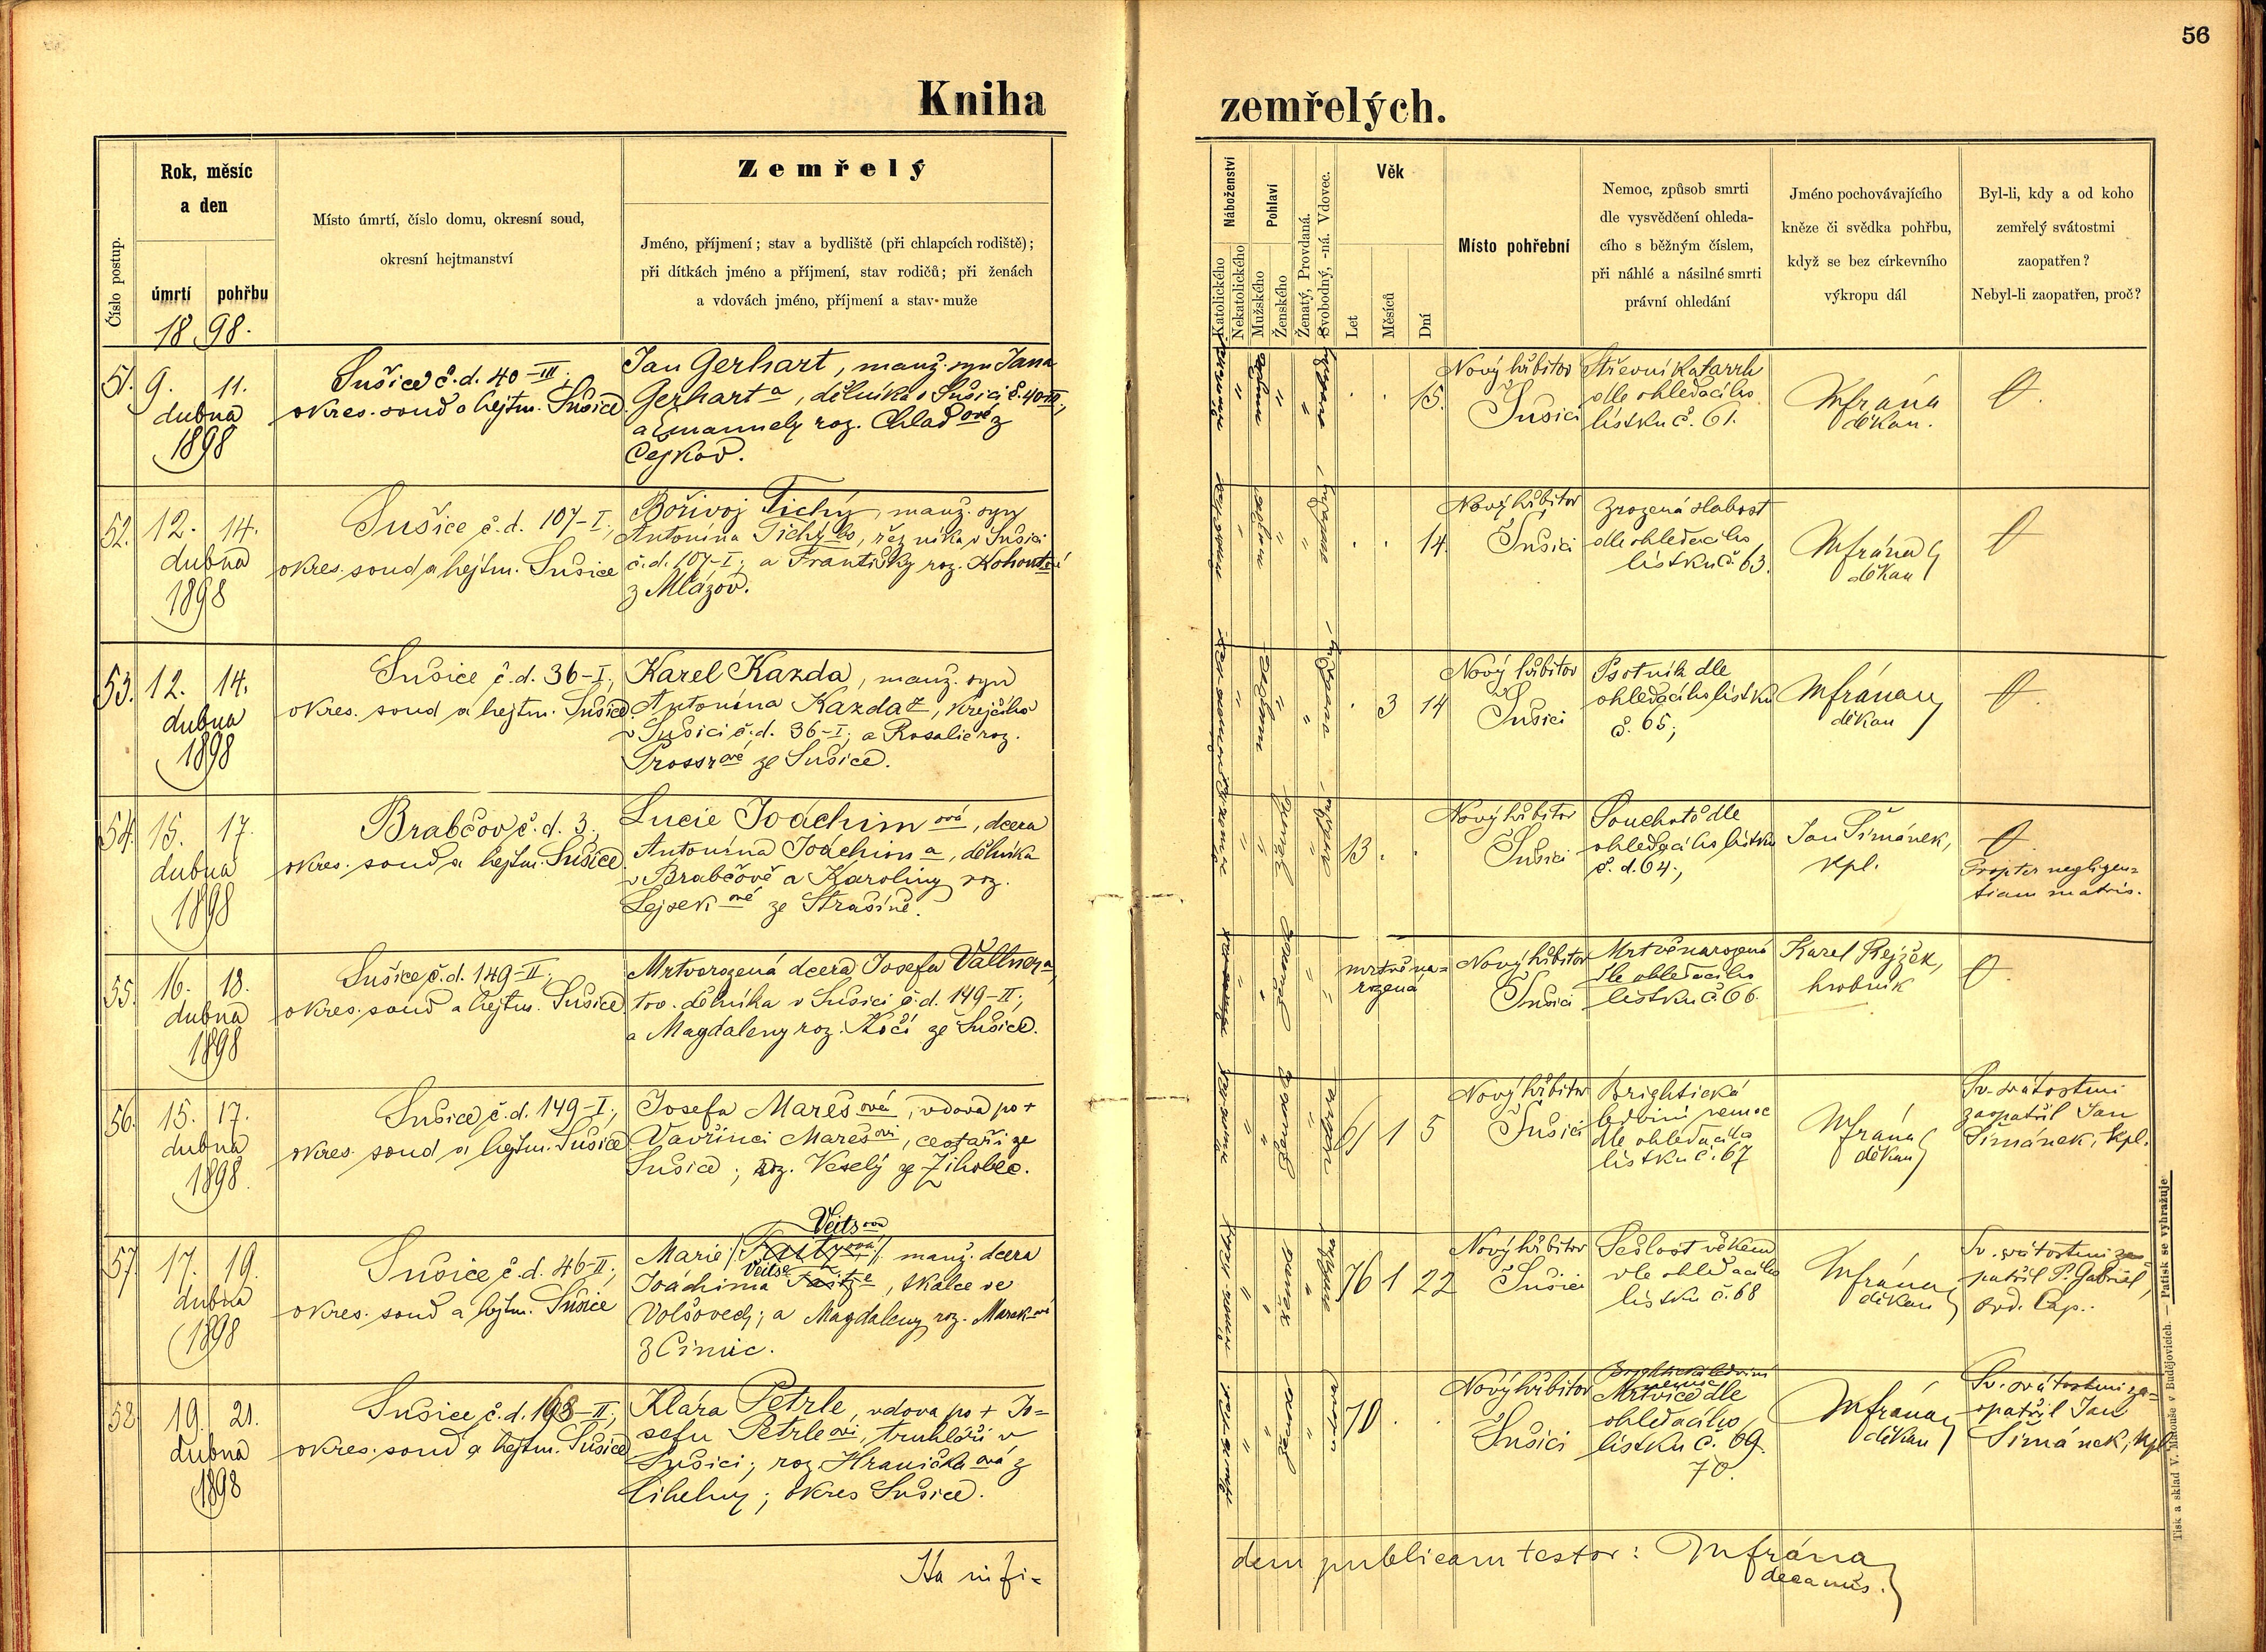 56
Kniha
zemřelých.
Číslo postup.
Rok, měsíc
a den
úmrtí
pohřbu
18 98.
Místo úmrtí, číslo domu, okresní soud,
okresní hejtmanství
Zemřelý
Jméno, příjmení; stav a bydliště (při chlapcích rodiště);
při dítkách jméno a příjmení, stav rodičů; při ženách
a vdovách jméno, příjmení a stav muže
Náboženství
Katolického
Nekatolického
Pohlaví
Mužského
Ženského
Ženatý, Provdaná.
Svobodný, -ná. Vdovec.
Věk
Let
Měsíců
Dní
Místo pohřební
Nemoc, způsob smrti
dle vysvědčení ohleda-
cího s běžným číslem,
při náhlé a násilné smrti
právní ohledání
Jméno pochovávajícího
kněze či svědka pohřbu,
když se bez církevního
výkropu dál
Byl-li, kdy a od koho
zemřelý svátostmi
zaopatřen?
Nebyl-li zaopatřen, proč?
51. 9. 11.
dubna
1898
Sušice č. d. 40-III;
okres. soud a hejtm. Sušice.
Jan Gerhart, manž. syn Jana
Gerharta, dělníka v Sušici č. 40-III;
a Emanuely roz. Chladové z
Čejkov.
15.
Nový hřbitov
Sušici
Střevní Katarrh
dle ohledacího
lístku č. 61.
Mfrána
děkan.
52. 12. 14.
dubna
1898
Sušice č. d. 107-I;
okres. soud a hejtm. Sušice
Bořivoj Tichý, manž. syn
Antonína Tichýho, řezníka v Sušici
č. d. 107-I; a Františky roz. Kohoutové
z Mlázov.
14.
Nový hřbitov
Sušici
Zrozená slabost
dle ohledacího
lístku č. 63.
Mfrána
děkan
53. 12. 14.
dubna
1898
Sušice č. d. 36-I;
okres. soud a hejtm. Sušice.
Karel Kazda, manž. syn
Antonína Kazdaz, krejčího
v Sušici č. d. 36-I; a Rosalie roz.
Prossrové ze Sušice.
3 14
Nový hřbitov
Sušici
Psotník dle
ohledacího lístku
č. 65;
Mfrána
děkan
54. 15. 17.
dubna
1898
Brabčov č. d. 3;
okres. soud a hejtm. Sušice.
Lucie Joachimová, dcera
Antonína Joachima, dělníka
v Brabčově a Karolíny roz.
Lejsekové ze Strašíně.
13
Nový hřbitov
Sušici
Souchotě dle
ohledacího lístku
č. d. 64;
Jan Šimánek,
kpl.
Propter negligen=
tiam matris.
55. 16. 18.
dubna
1898
Sušice č. d. 149-II;
okres. soud a hejtm. Sušice.
Mrtvorozená dcera Josefa Valtnera,
tov. dělníka v Sušici č. d. 149-II;
a Magdaleny roz. Kočí ze Sušice.
mrtvě na=
rozená
Nový hřbitov
Sušici
Mrtvěnarozená
dle ohledacího
lístku č. 66.
Karel Rejžek,
hrobník
56. 15. 17.
dubna
1898.
Sušice č. d. 149-I;
okres. soud a hejtm. Sušice
Josefa Marešová, vdova po +
Vavřinci Marešovi, cestaři ze
Sušice; roz. Veselý ze Žihobec.
61 1 5
Nový hřbitov
Sušici
Brightická
ledviní nemoc
dle ohledacího
lístku č. 67
Mfrána
děkan
Sv. svátostmi
zaopatřil Jan
Šimánek, kpl.
57. 17. 19.
dubna
1898
Sušice č. d. 46-II;
okres. soud a hejtm. Sušice
Veitsová
Marie manž. dcera
Veitse
Joachima, tkalce ve
Volšovech; a Magdaleny roz. Marekové
z Čimic.
76 1 22
Nový hřbitov
Sušici
Sešlost věkem
dle ohledacího
lístku č. 68
Mfrána
děkan
Sv. svátostmi zao
patřil P. Gabriel,
ord. Cap.
58. 19. 21.
dubna
1898
Sušice č. d. 198-II;
okres. soud a hejtm. Sušice
Klára Petrle, vdova po + Jo=
sefu Petrleovi, truhláři v
Sušici; roz. Hraničkaová z
Cihelny; okres Sušice.
70.
Nový hřbitov
Sušici
Brightická ledviní
nemoc
Mrtvice dle
ohledacího
lístku č. 69.
70.
Mfrána
děkan
Sv. svátostmi za-
opatřil Jan
Šimánek, kpl.
Ita in fi=
dem publicam testor: Mfrána
decanus.
Tisk a sklad V. Matouše v Budějovicích. — Patisk se vyhražuje